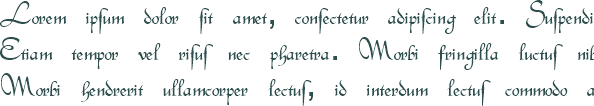 Lorem ipsum dolor sit amet, consectetur adipiscing elit. Suspendi
Etiam tempor vel risus nec pharetra. Morbi fringilla luctus nib
Morbi hendrerit ullamcorper lectus, id interdum lectus commodo a